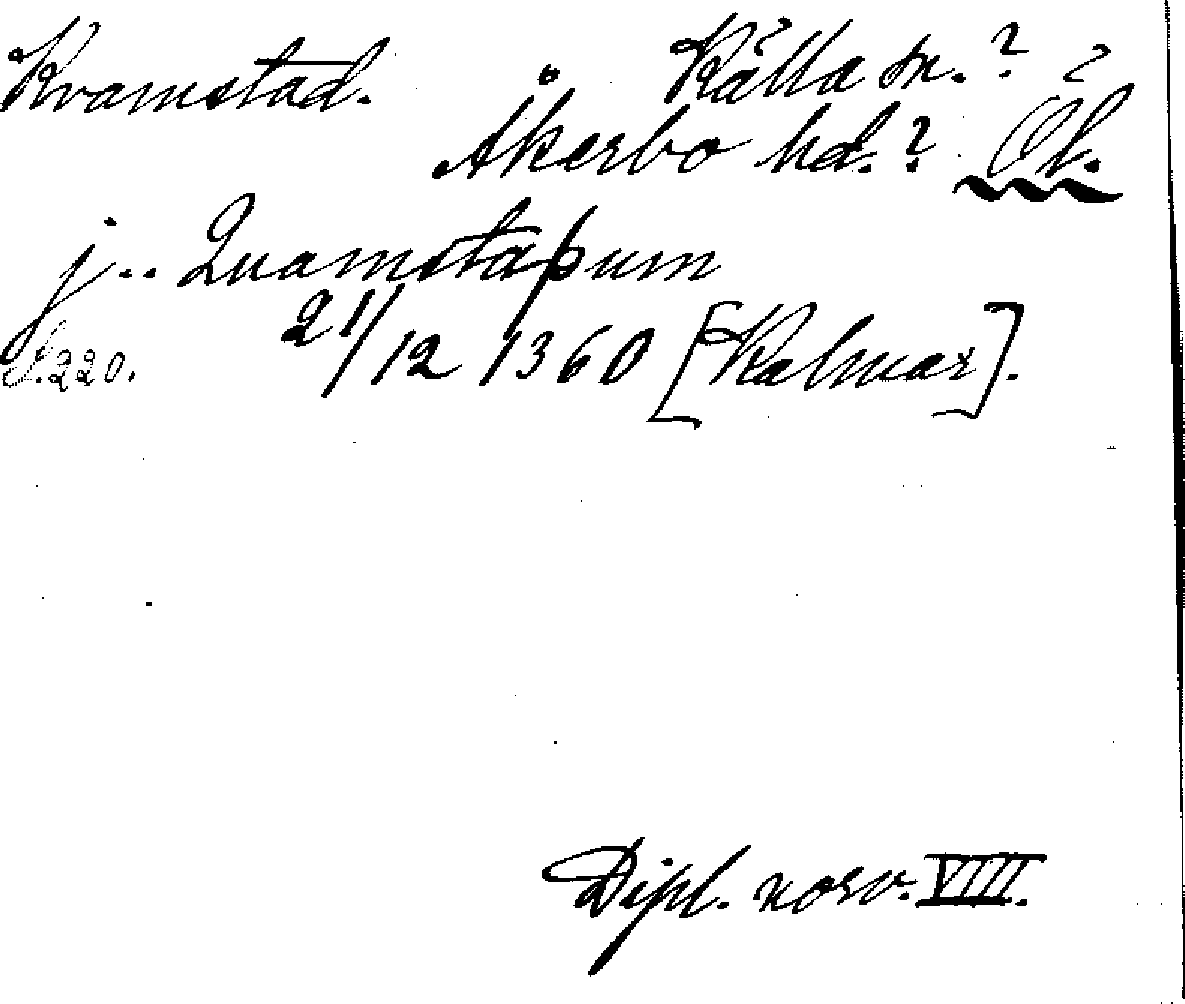 Kvamstad. Källa sn. ? ?
Åkerbo hd. ? Öl.
j .. Quamstaþum
S. 220. 21/12 1360 [Kalmar].
Dipl. norv. VIII.